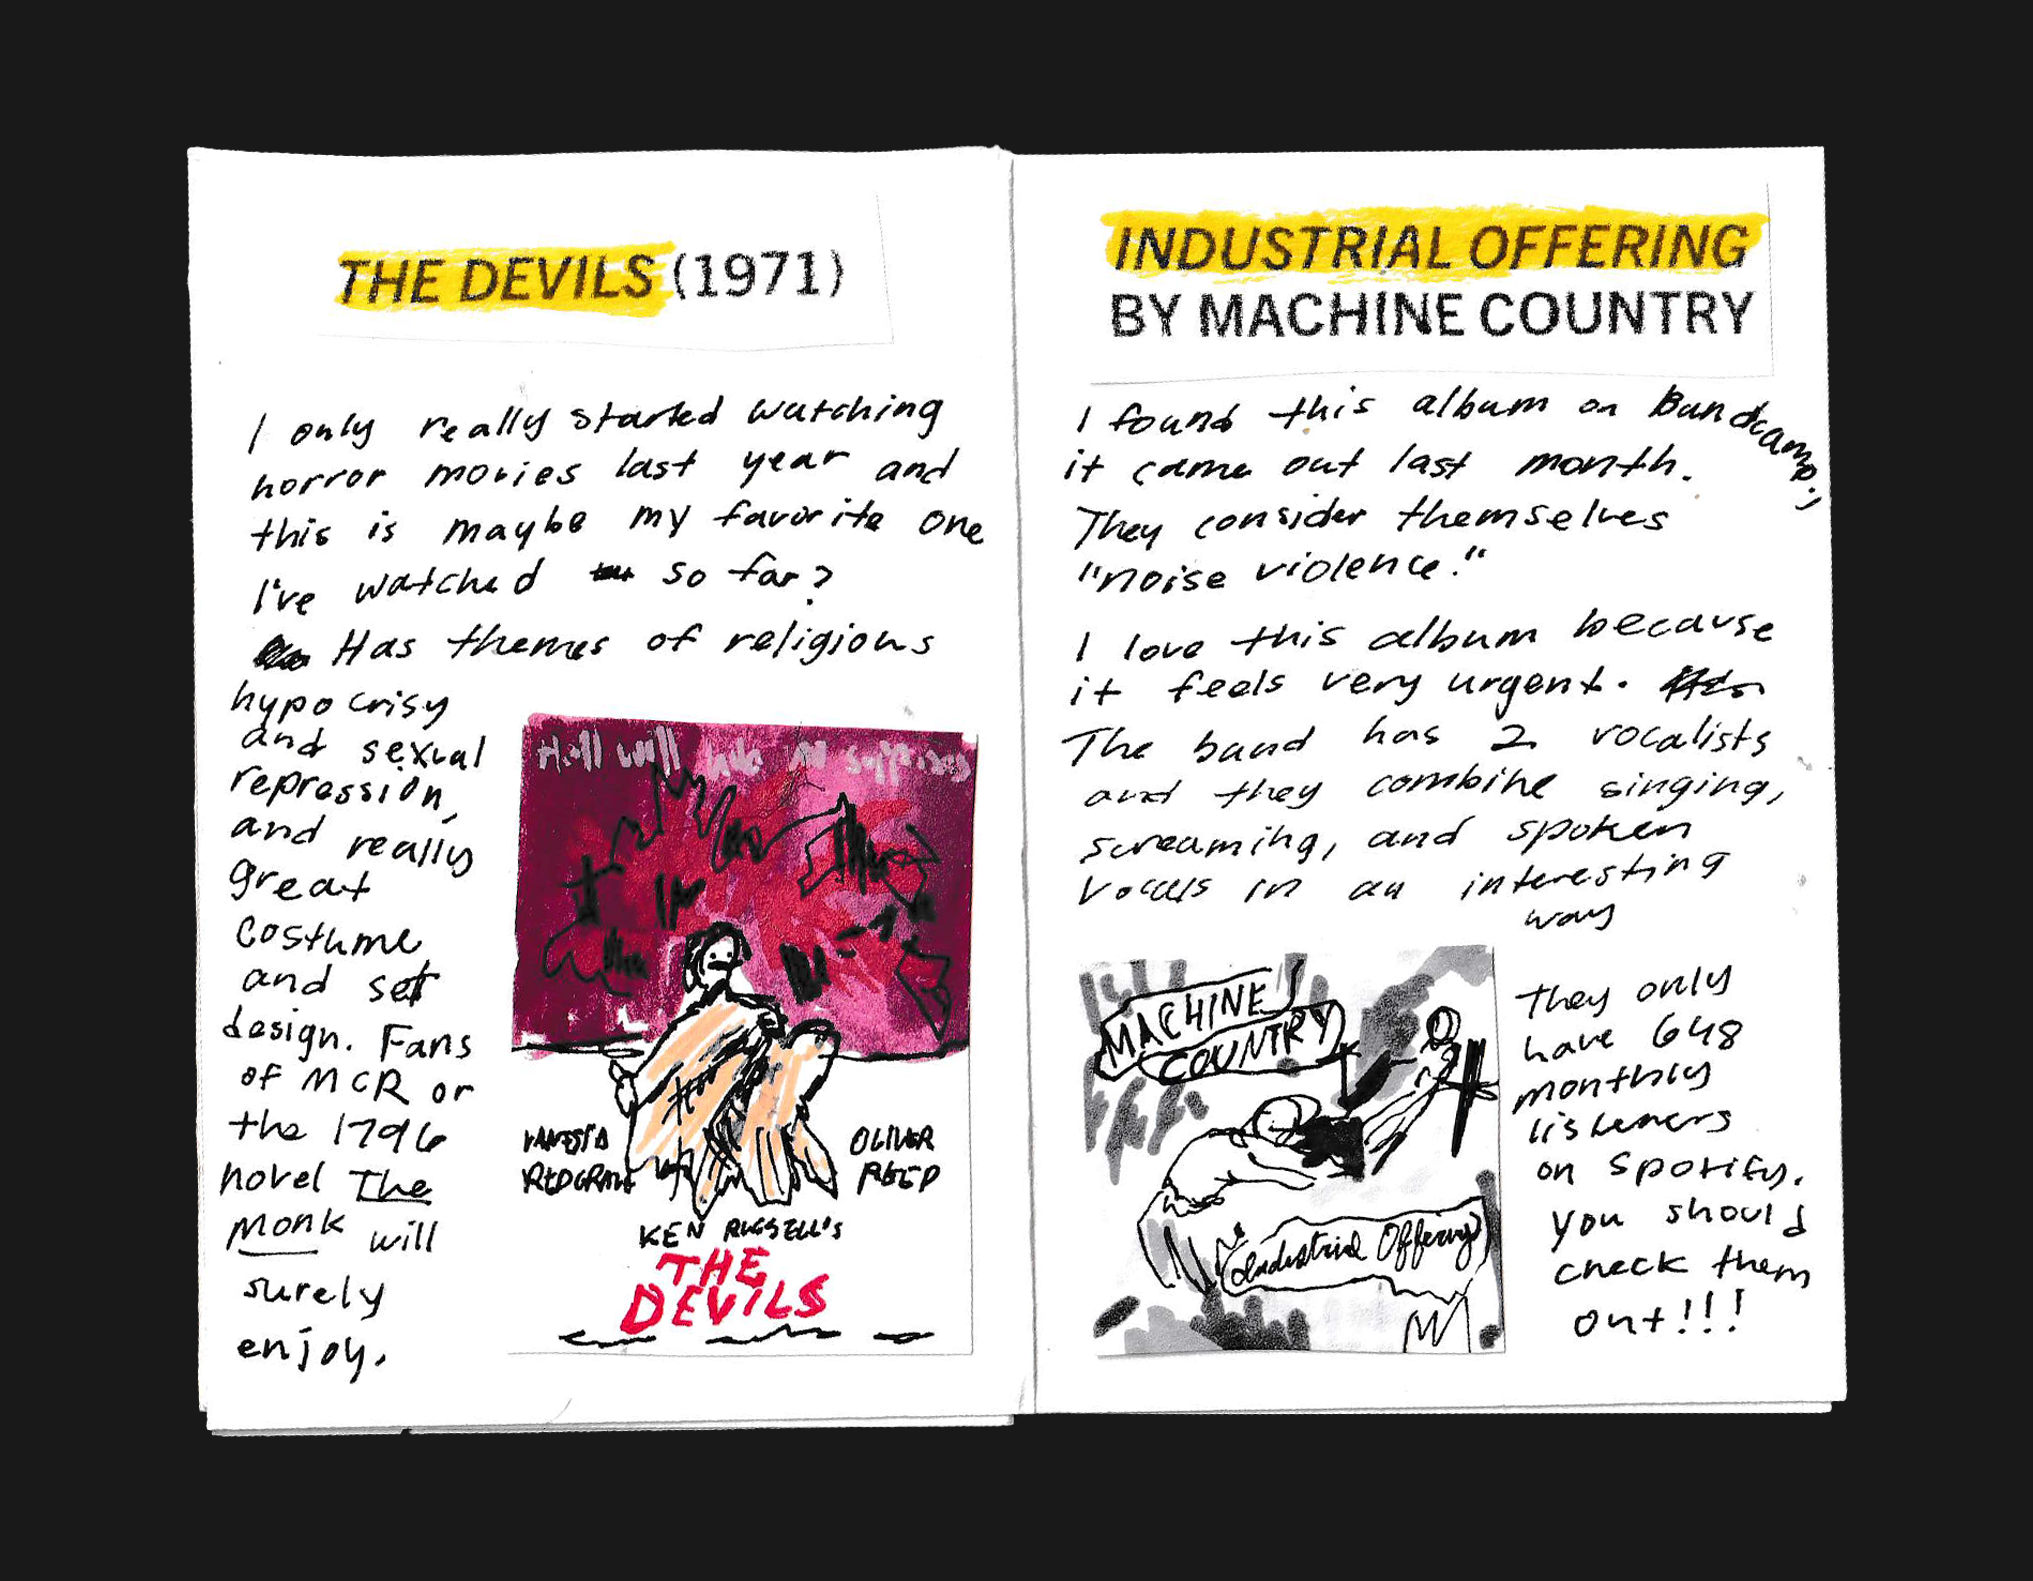 THE DEVILS (1971)
I only really started watching
horror movies last year and
this is maybe my favorite one
I've watched so far?
Has themes of religious
hypocrisy
and sexual
repression,
and really
great
costume
and set
design. Fans
of MCR or
the 1796
novel The
Monk will
surely
enjoy.
Hell will
VANESSA
REDGRAVE
OLIVER
REED
KEN RUSSELL'S
THE
DEVILS
INDUSTRIAL OFFERING
BY MACHINE COUNTRY
I found this album on Bandcamp;
it came out last month.
They consider themselves
"noise violence."
I love this album because
it feels very urgent.
The band has 2 vocalists
and they combine singing,
screaming, and spoken
vocals in an interesting
way
They only
have 648
monthly
listeners
on Spotify.
You should
check them
out!!!
MACHINE
COUNTRY
Industrial Offering